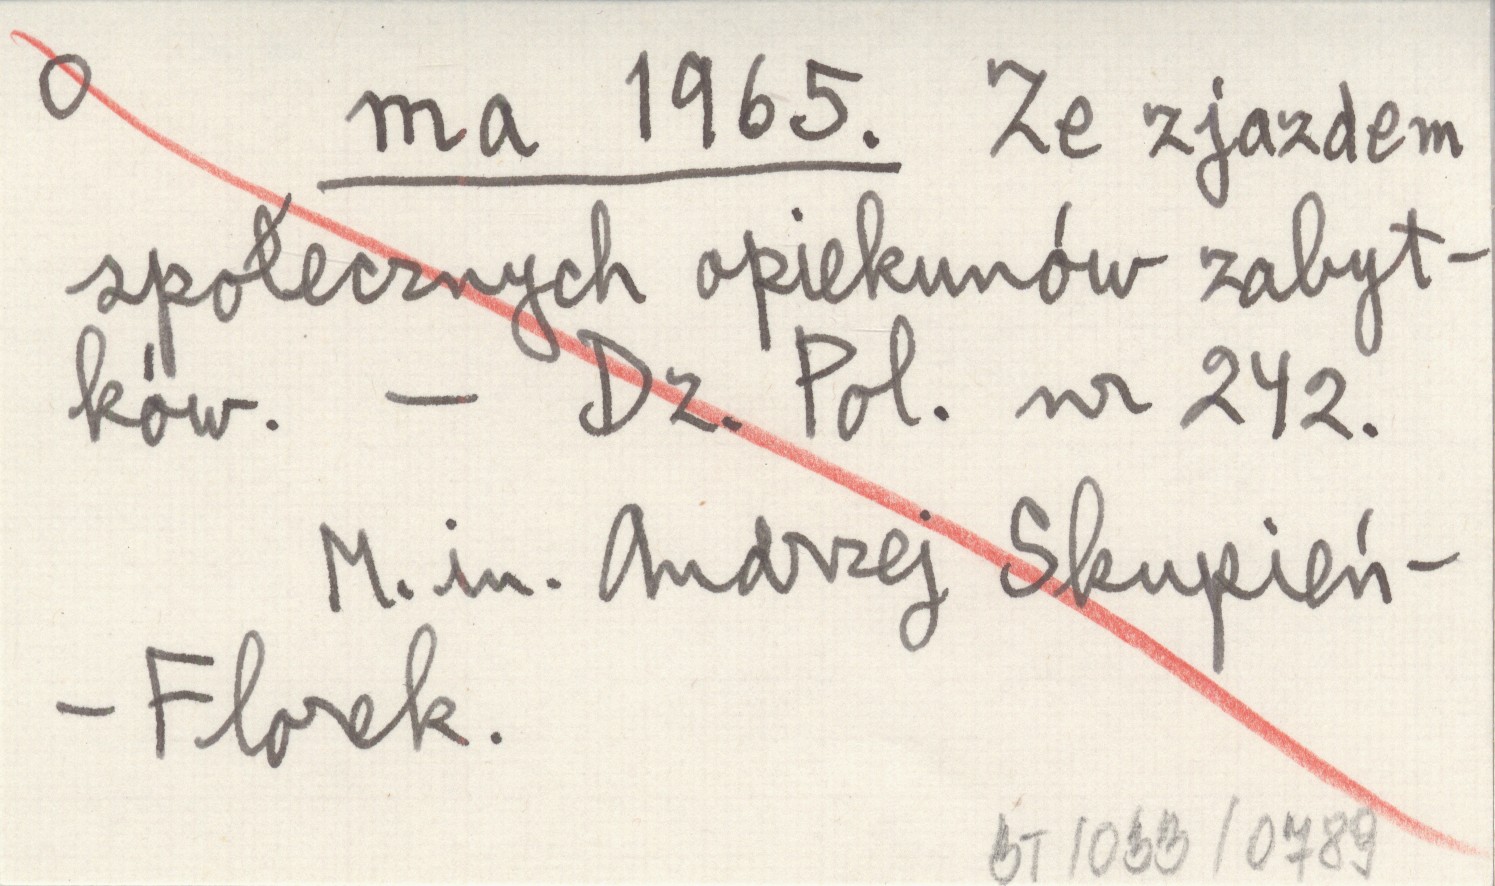 O ma 1965. Ze zjazdem
społecznych opiekunów zabyt-
ków. — Dz. Pol. nr 242.
M. in. Andrzej Skupień-
-Florek.
BT / 033 / 0789